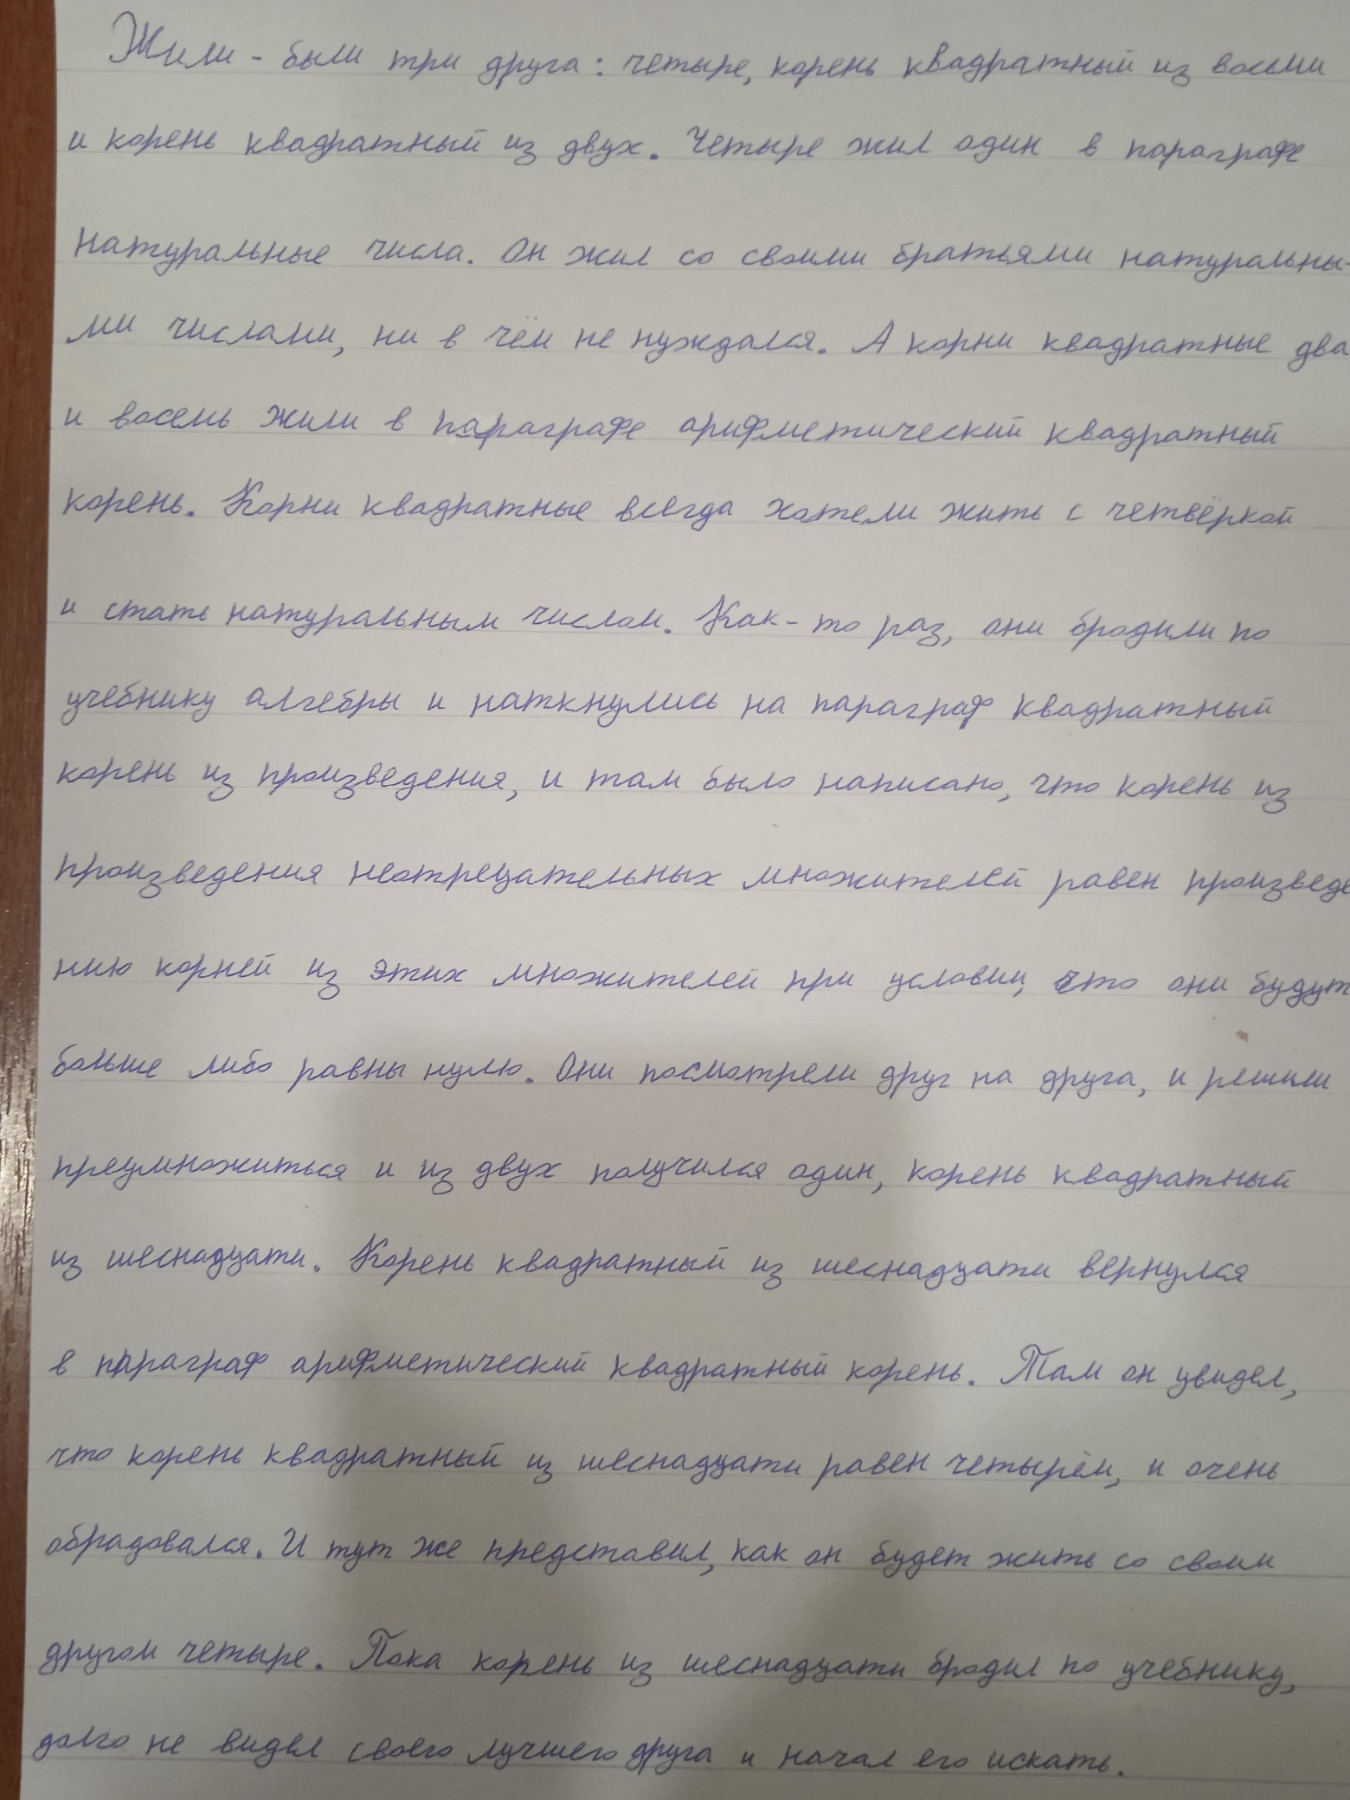 Жили - были три друга: четыре, корень квадратный из восьми
и корень квадратный из двух. Четыре жил один в параграфе
натуральные числа. Он жил со своими братьями натуральны-
ми числами, ни в чём не нуждался. А корни квадратные два
и восемь жили в параграфе арифметический квадратный
корень. Корни квадратные всегда хотели жить с четвёркой
и стать натуральным числом. Как-то раз, они бродили по
учебнику алгебры и наткнулись на параграф квадратный
корень из произведения, и там было написано, что корень из
произведения неотрецательных множителей равен произведе
нию корней из этих множителей при условии, что они будут
больше либо равны нулю. Они посмотрели друг на друга, и решили
преумножиться и из двух получился один, корень квадратный
из шеснадцати. Корень квадратный из шеснадцати вернулся
в параграф арифметический квадратный корень. Там он увидел,
что корень квадратный из шеснадцати равен четырём, и очень
обрадовался. И тут же представил, как он будет жить со своим
другом четыре. Пока корень из шеснадцати бродил по учебнику,
долго не видел своего лучшего друга и начал его искать.